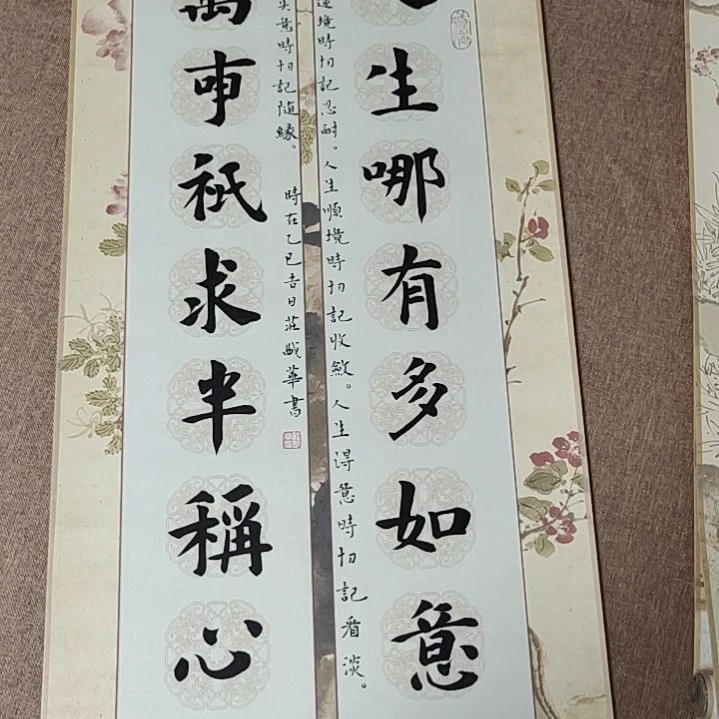 生哪有多如意
逆境時切記忍耐。人生順境時切記收斂。人生得意時切記看淡。
失意時切記隨緣。 時在乙巳吉日莊華書
萬事祇求半稱心